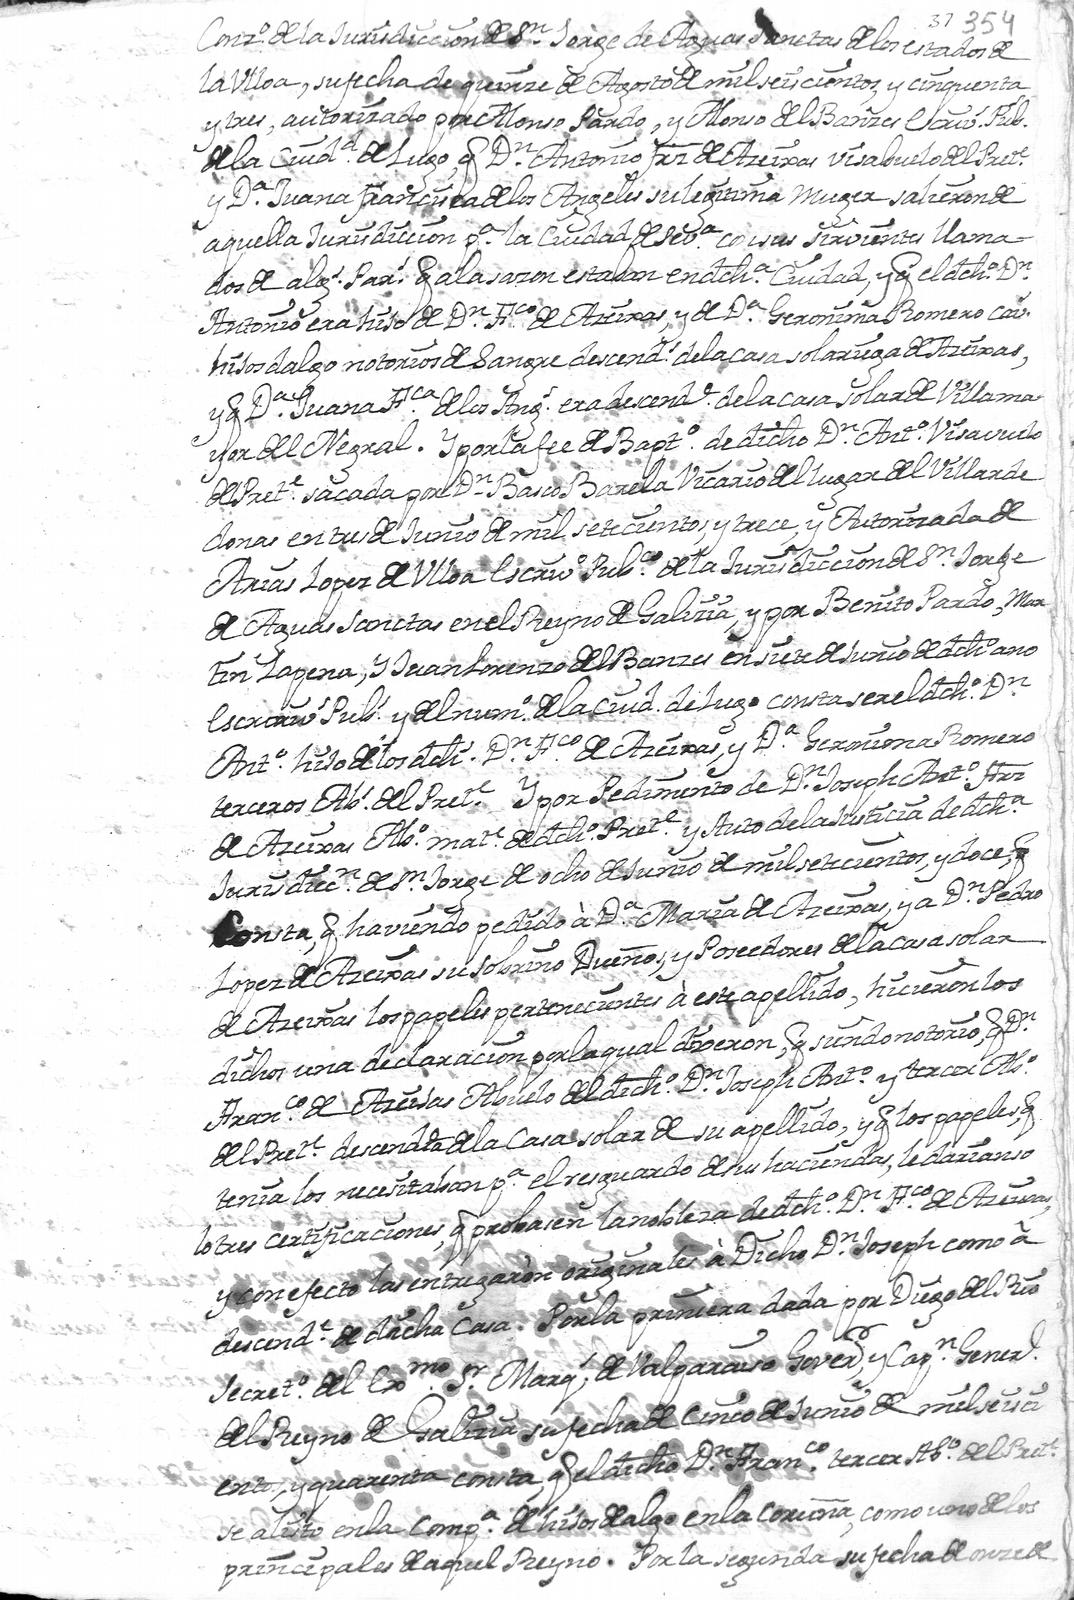 37 354
Conzo. de la Jurisdiccion de Sn. Jorge de Aguas Sanctas de los estados de
la Ulloa, su fecha de quinze de Agosto de mil seiscientos y cinquenta
y tres, autorizado por Alonso Pardo, y Alonso del Banzes Escriv. Pub.
de la Ciudd. de Lugo, q Dn. Antonio frz de Azeixas visabuelo del Prete.
y Da. Juana francisca de los Angeles su legitima Muger salieron de
aquella Jurisdiccion pa. la Ciudad de Seva. con sus sirvientes llama-
dos de algs. Pars. q a la sazon estaban en dcha. Ciudad, y q el dcho. Dn.
Antonio era hijo de Dn. Fco. de Azeixas, y de Da. Geronima Romero cav.
hijosdalgo notorios de Sangre descends. de la casa solariega de Azeixas,
y q Da. Juana Fca. de los Angs. era descende. de la casa solar de Villama
yor del Negral. Y por la fee de Bapto. de dicho Dn. Anto. Visavuelo
del Prete. sacada por Dn. Basco Barela Vicario del lugar del Villar de
donas en tres de Junio de mil setecientos, y trece, y Autorizada de
Arias Lopez de Ulloa Escrivo. Pubco. de la Jurisdiccion de Sn. Jorge
de Aguas Sanctas en el Reyno de Galizia, y por Benito Pardo, Mar
tin Lapena, y Juan Lorenzo del Banzes en siete de Junio de dcho. ano
Escrivs. Pubs. y del numo. de la Ciud. de Lugo consta ser el dcho. Dn.
Anto. hijo de los dchs. Dn. Fco. de Azeixas, y Da. Geronima Romero
terceros Abs. del Prete. Y por Pedimento de Dn. Joseph Anto. Frz
de Azeixas Abo. mate. de dcho. Prete. y Auto de la Justicia de dcha.
Jurisdiccn. de Sn. Jorge de ocho de Junio de mil setecientos, y doce, q
Consta, q haviendo pedido à Da. Maria de Azeixas, y a Dn. Pedro
Lopez de Azeixas su sobrino Dueños, y Poseedores de la casa solar
de Azeixas los papeles pertenecientes à este apellido, hicieron los
dichos una declaracion por la qual dixeron, q siendo notorio, q Dn.
Franco. de Azeixas Abuelo del dicho. Dn. Joseph Anto. y tercer Abo.
del Prete. descendia de la Casa solar de su apellido, y q los papeles, q
tenia los necesitaban pa. el resguardo de sus haciendas, le darian so
lo tres certificaciones, q probasen la nobleza de dcho. Dn. Fco. de Azeixas,
y con efecto las entregaron originales à Dicho Dn. Joseph como à
descende. de dicha Casa. Por la primera dada por Diego del Rio
Secreto. del Exmo. Sr. Marqs. de Valparaiso Goverr. y Capn. Generl.
del Reyno de Galizia su fecha de cinco de Junio de mil seisci
entos, y quarenta consta, q el dicho Dn. Franco. tercer Abo. del Prete.
se alisto en la Compa. de hijos dalgo en la Coruña, como uno de los
principales de aquel Reyno. Por la segunda su fecha de onze de